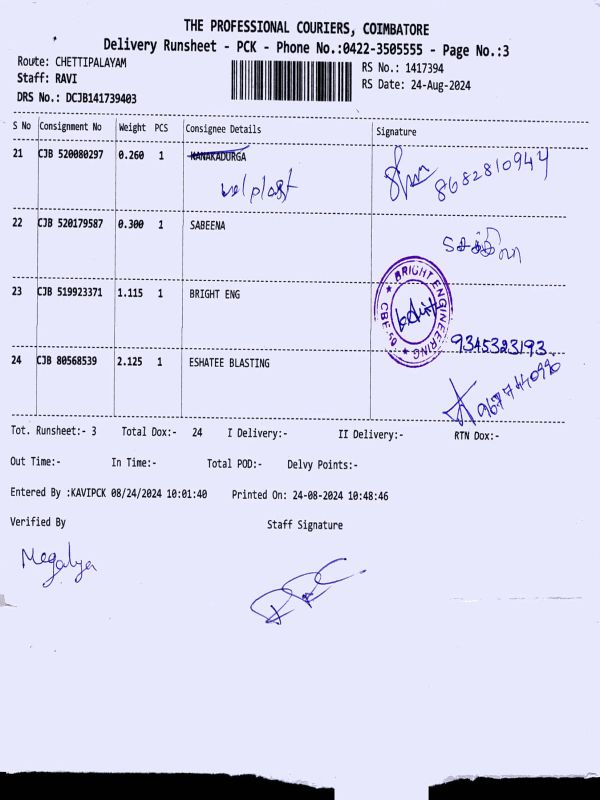 THE PROFESSIONAL COURIERS, COIMBATORE
Delivery Runsheet - PCK - Phone No.:0422-3505555 - Page No.:3
Route: CHETTIPALAYAM
RS No.: 1417394
Staff: RAVI
RS Date: 24-Aug-2024
DRS No.: DCJB141739403
S No Consignment No Weight PCS Consignee Details Signature
21 CJB 520080297 0.260 1 KANAKADURGA
velplast
8682810944
22 CJB 520179587 0.300 1 SABEENA
23 CJB 519923371 1.115 1 BRIGHT ENG
BRIGHT ENGINEERING
CBE-50
9345323193
24 CJB 80568539 2.125 1 ESHATEE BLASTING
Tot. Runsheet:- 3 Total Dox:- 24 I Delivery:- II Delivery:- RTN Dox:-
Out Time:- In Time:- Total POD:- Delvy Points:-
Entered By :KAVIPCK 08/24/2024 10:01:40 Printed On: 24-08-2024 10:48:46
Verified By Staff Signature
Megalya